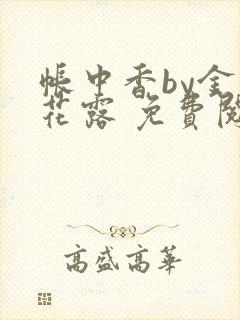 帳中香by金
花露 免費閱
高盛高華